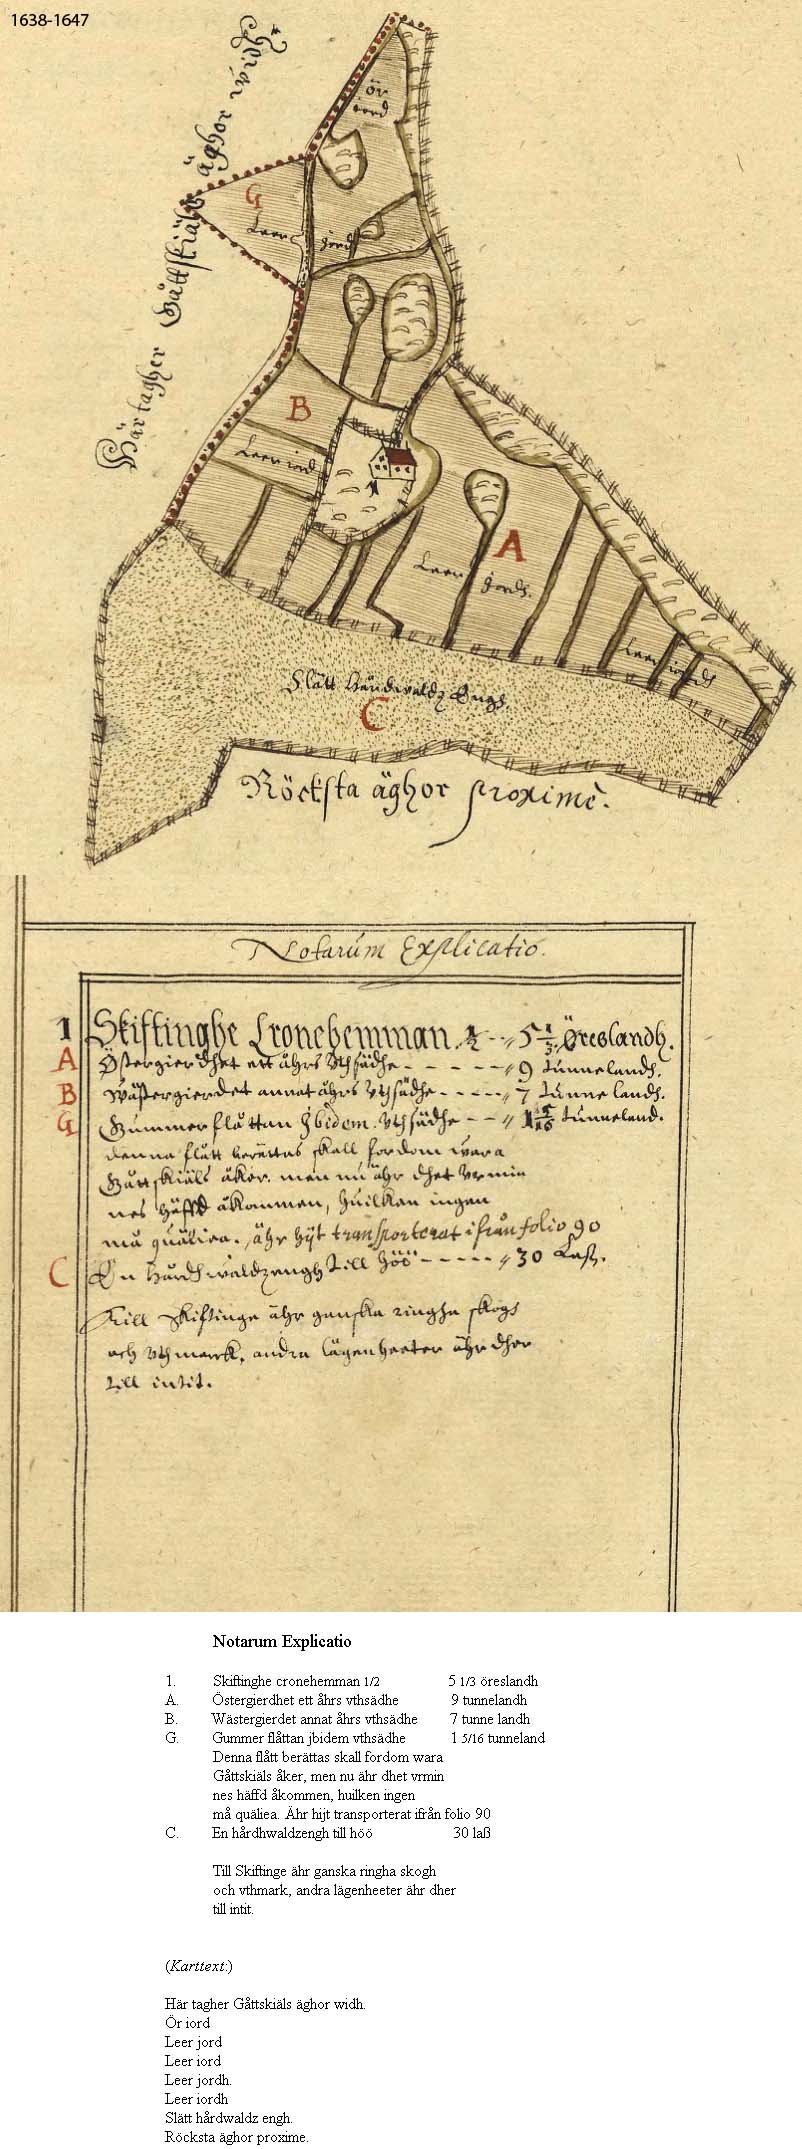 1638-1647
Här tagher Gåttskiäls äghor widh
ör
iord
G
Leer
jord
B
Leer iord
1
A
Leer
jordh.
Leer iordh
Slätt hårdwaldz Engh.
C
Röcksta äghor proxime.
Notarum Explicatio.
1 Skiftinghe Cronehemman. ½ 5 1/3 Öreslandh.
A Östergierdhet ett åhrs Vthsädhe - - - - - 9 tunnelandh.
B Wästergierdet annat åhrs Vthsädhe - - - - - 7 tunne landh.
G Gummer flåttan Jbidem. Vthsädhe - - 1 5/16 tunneland.
denna flått berättas skall fordom wara
Gåttskiäls åker. men nu ähr dhet vrmin
nes häffd åkommen, huilken ingen
må quäliea. ähr hijt transporterat ifrån folio 90
C En hårdhwaldzengh till höö - - - - - 30 Laß.
Till Skiftinge ähr ganska ringha skogh
och vthmarck, andra lägenheeter ähr dher
till intit.
Notarum Explicatio
1. Skiftinghe cronehemman 1/2 5 1/3 öreslandh
A. Östergierdhet ett åhrs vthsädhe 9 tunnelandh
B. Wästergierdet annat åhrs vthsädhe 7 tunne landh
G. Gummer flåttan jbidem vthsädhe 1 5/16 tunneland
Denna flått berättas skall fordom wara
Gåttskiäls åker, men nu ähr dhet vrmin
nes häffd åkommen, huilken ingen
må quäliea. Ähr hijt transporterat ifrån folio 90
C. En hårdhwaldzengh till höö 30 laß
Till Skiftinge ähr ganska ringha skogh
och vthmark, andra lägenheeter ähr dher
till intit.
(Karttext:)
Här tagher Gåttskiäls äghor widh.
Ör iord
Leer jord
Leer iord
Leer jordh.
Leer iordh
Slätt hårdwaldz engh.
Röcksta äghor proxime.